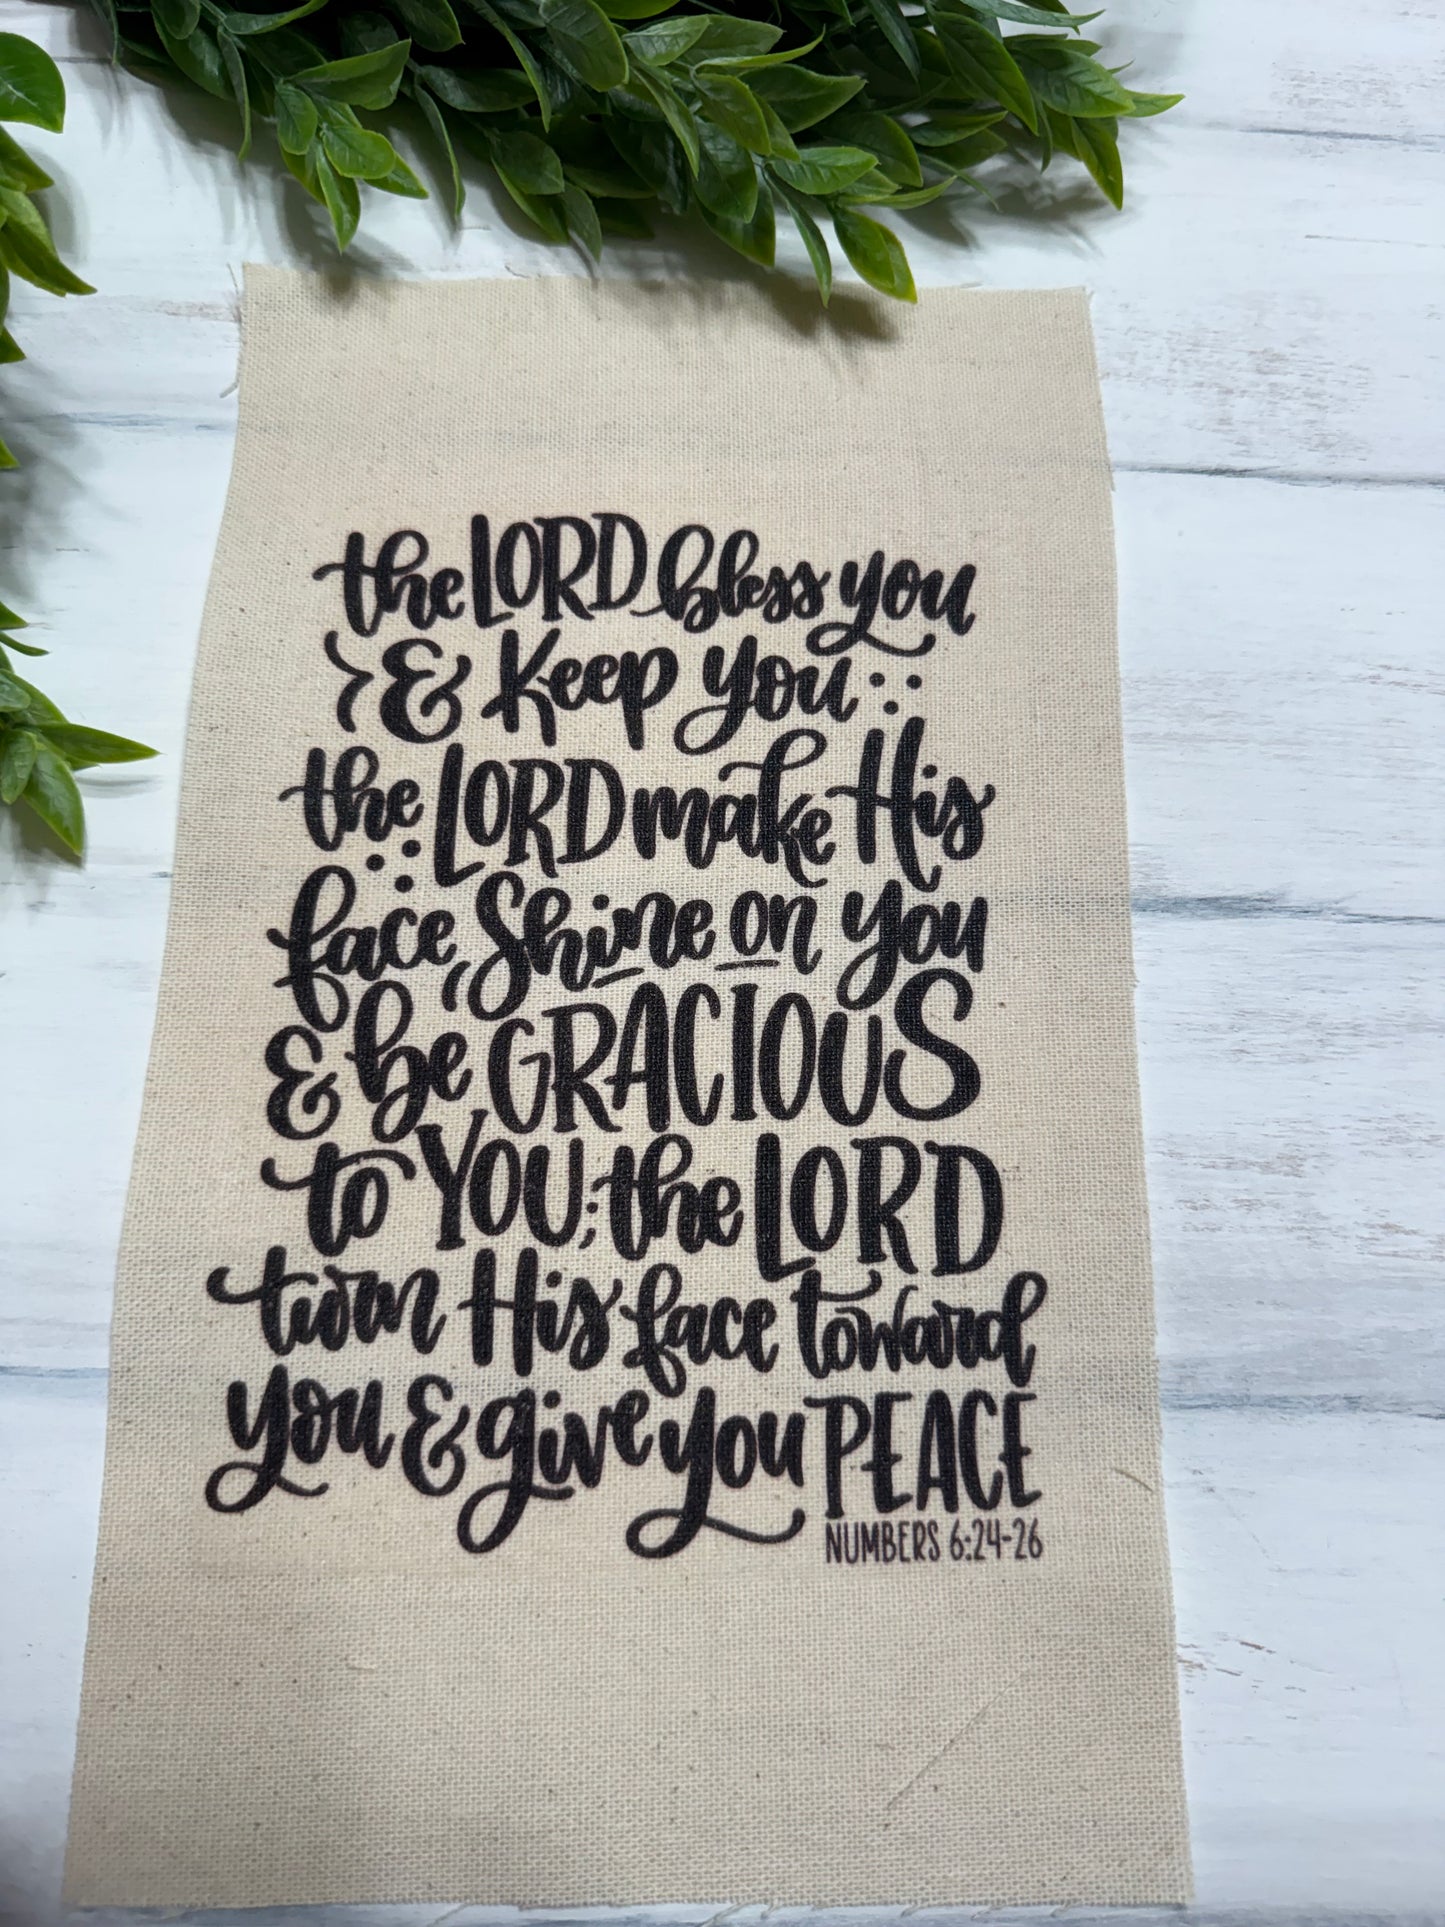 the LORD bless you
& Keep you
the LORD make His
face Shine on you
& be GRACIOUS
to YOU; the LORD
turn His face toward
you & give you PEACE
NUMBERS 6:24-26